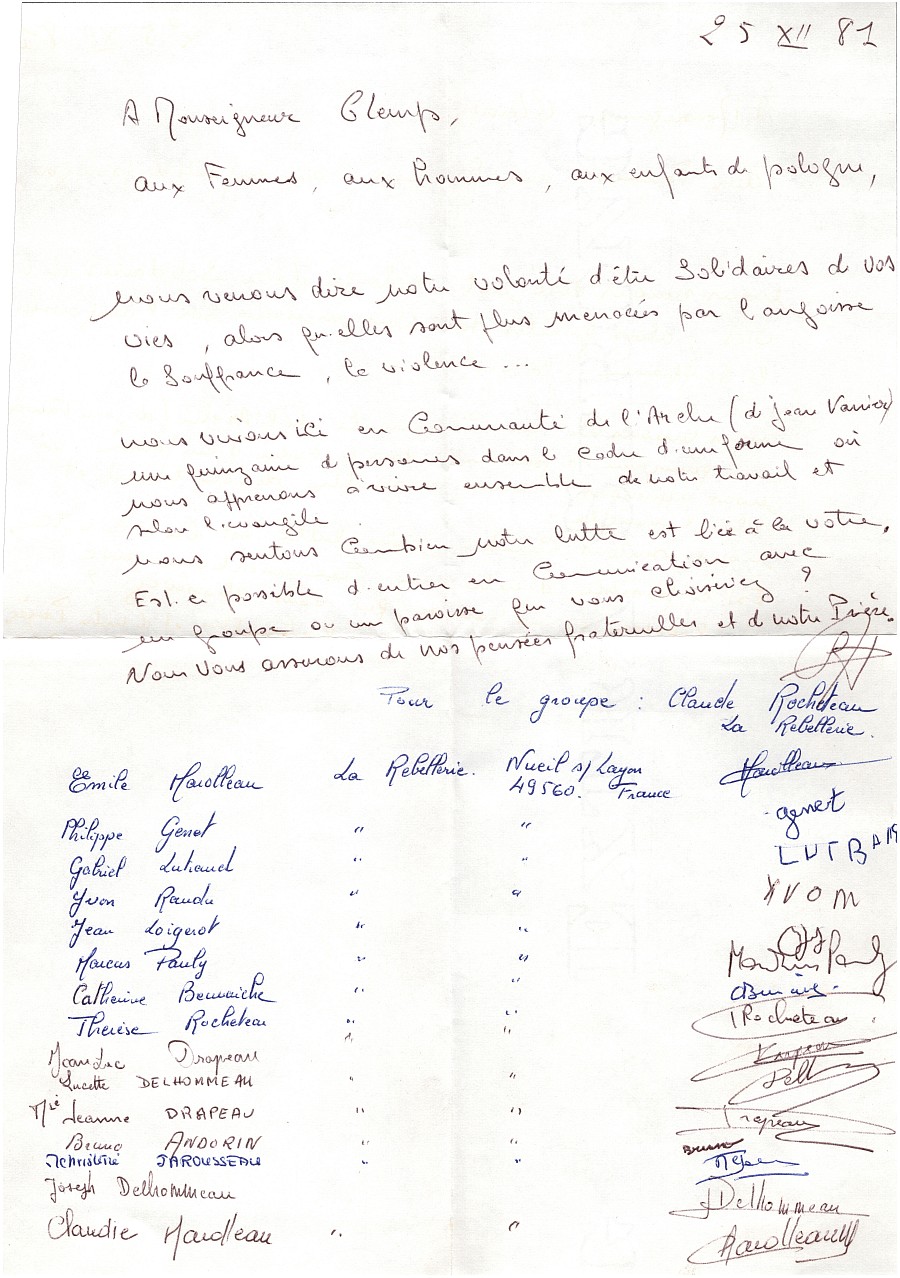 25 XII 81
A Monseigneur Glemp,
aux Femmes, aux hommes, aux enfants de pologne,
nous venons dire notre volonté d'être Solidaires de vos
vies, alors qu'elles sont plus menacées par l'angoisse
la Souffrance, la violence ...
nous vivons ici en Communauté de l'Arche (de jean Vanier)
une quinzaine de personnes dans le cadre d'une ferme où
nous apprenons à vivre ensemble de notre travail et
selon l'évangile
nous sentons Combien notre lutte est liée à la votre.
Est-ce possible d'entrer en Communication avec
un groupe ou une paroisse que vous choisiriez ?
Nous vous assurons de nos pensées fraternelles et de notre Prière.
Pour le groupe : Claude Rocheteau
La Rebellerie.
Emile Marolleau La Rebellerie. Nueil s/Layon Marolleau
49560. France
Philippe Genet " " genet
Gabriel " "
Yvon " " YVOM
Jean Loigerot " "
Marcus Pauly " " Pauly
Catherine " "
Therèse Rocheteau " " Rocheteau
Jean Luc Drapeau " " Drapeau
Lucette DELHOMMEAU " " Delh
Mie Jeanne DRAPEAU " " Drapeau
Bruno ANDORIN " " Bruno
MChristine JAROUSSEAU " "
Joseph Delhommeau Delhommeau
Claudie Marolleau " " Marolleau